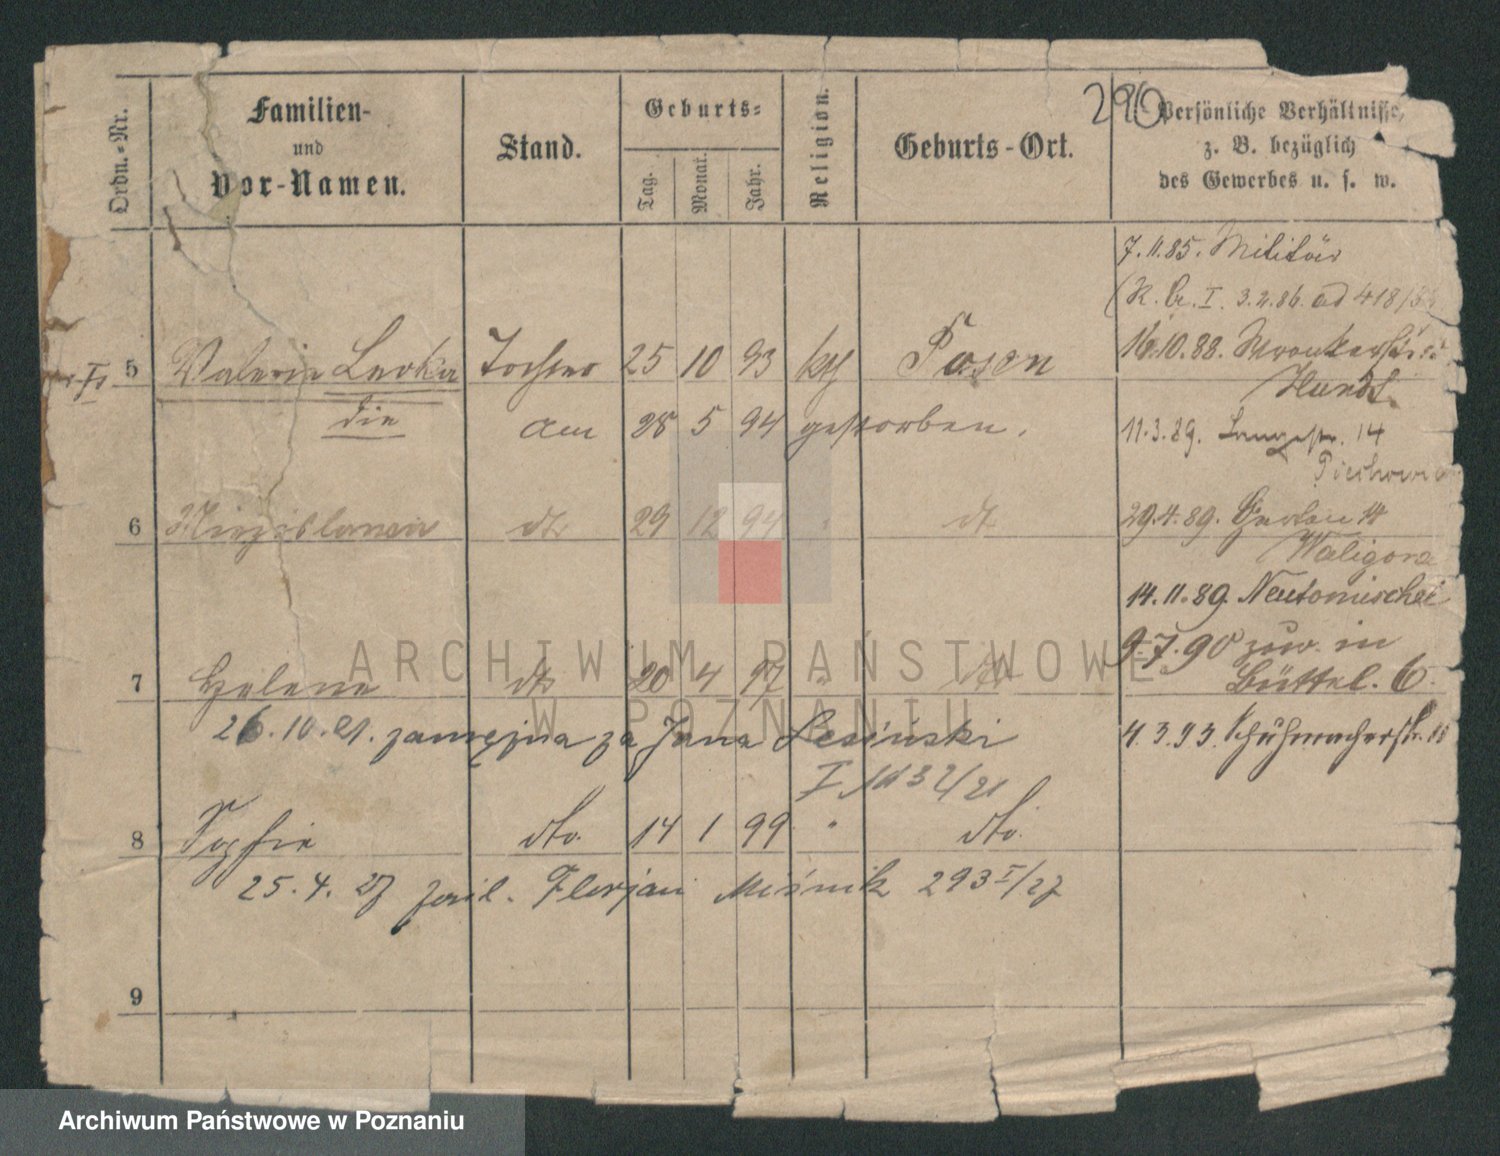 290
Ordn.-Nr.
Familien-
und
Vor-Namen.
Stand.
Geburts-
Tag.
Monat.
Jahr.
Religion.
Geburts-Ort.
Persönliche Verhältnisse,
z. B. bezüglich
des Gewerbes u. s. w.
7.11.85. Militär
3.2.86. ad 418/86
5 Valeria Lerka Tochter 25 10 93 kth Posen
16.10.88.
die am 28 5 94 gestorben.
11.3.89. Langestr. 14
6 dto 29 12 94 " dto
29.4.89. Garten 14
Waligora
14.11.89. Neutomischel
7 Helene dto 20 4 97 " dto
9.7.90 zur. in
Büttel. 6.
26.10.21. zamężna za Jana Lesiński
4.3.93. Schuhmacherstr. 18
8 Sophie dto. 14 1 99 " dto.
25.4.27 Florjan Miśnik 293 I/27
9
ARCHIWUM PAŃSTWOWE
W POZNANIU
Archiwum Państwowe w Poznaniu